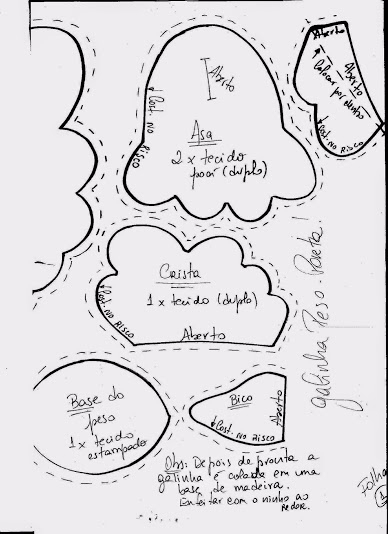 Aberto
Aberto
Colocar por dentro
↓ Cost. NO RISCO
Aberto
↓ Cost. NO RISCO
Asa
2 x tecido
poá (duplo)
Crista
1 x tecido (duplo)
↓ Cost. NO RISCO
Aberto
galinha Peso-Porta!
Base do
peso
1 x tecido
estampado
Bico
↓ Cost. NO RISCO
Aberto
Obs: Depois de pronta a
galinha é colada em uma
base de madeira.
Enfeitar com o ninho ao
redor.
Folha
1